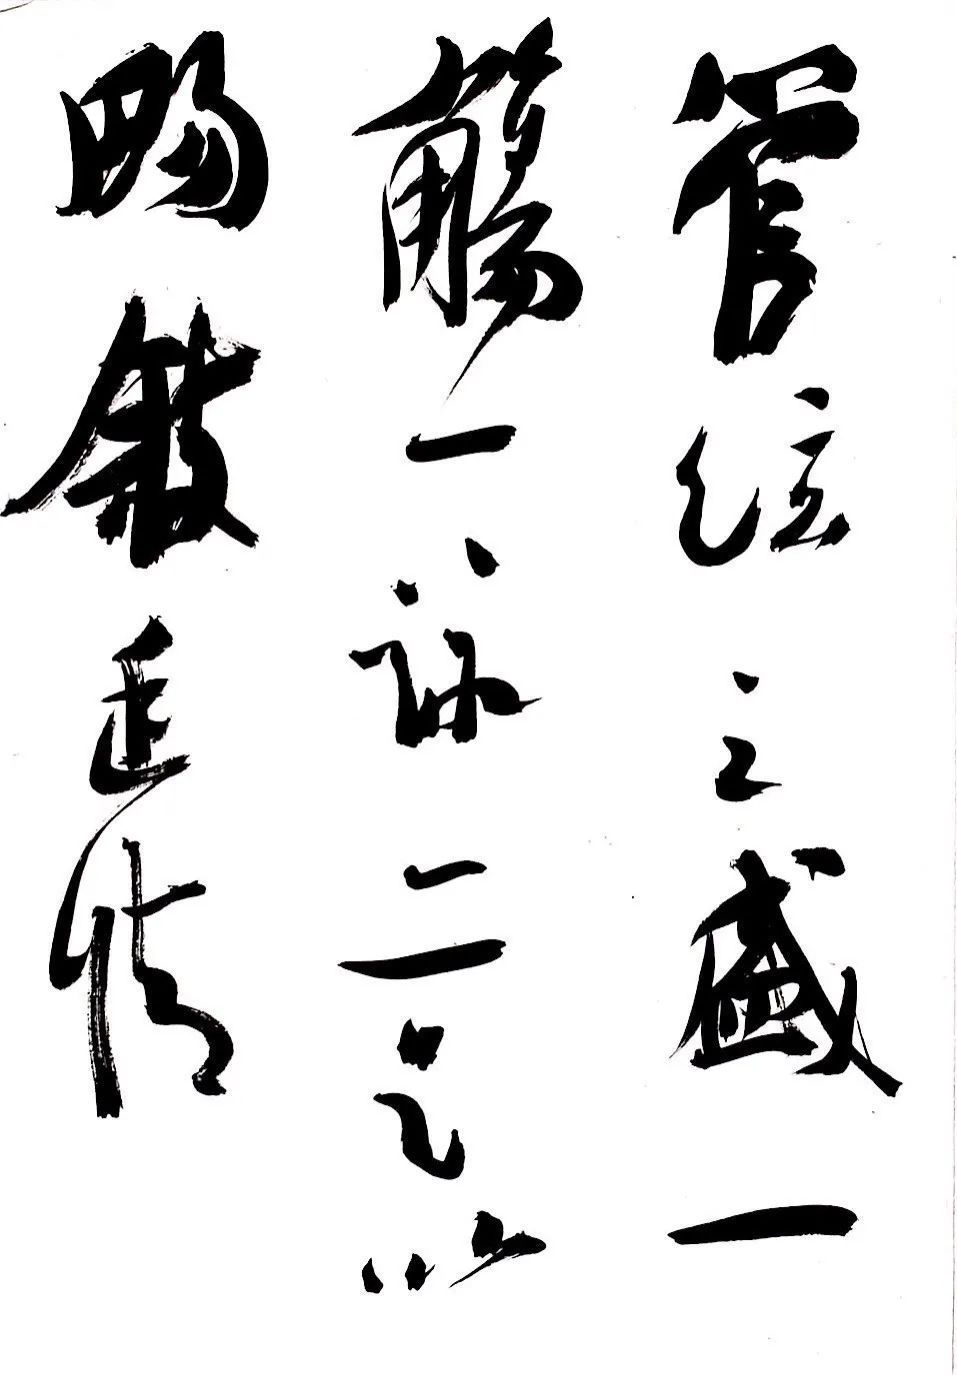 管絃之盛一
觴一詠亦足以
暢敘幽情